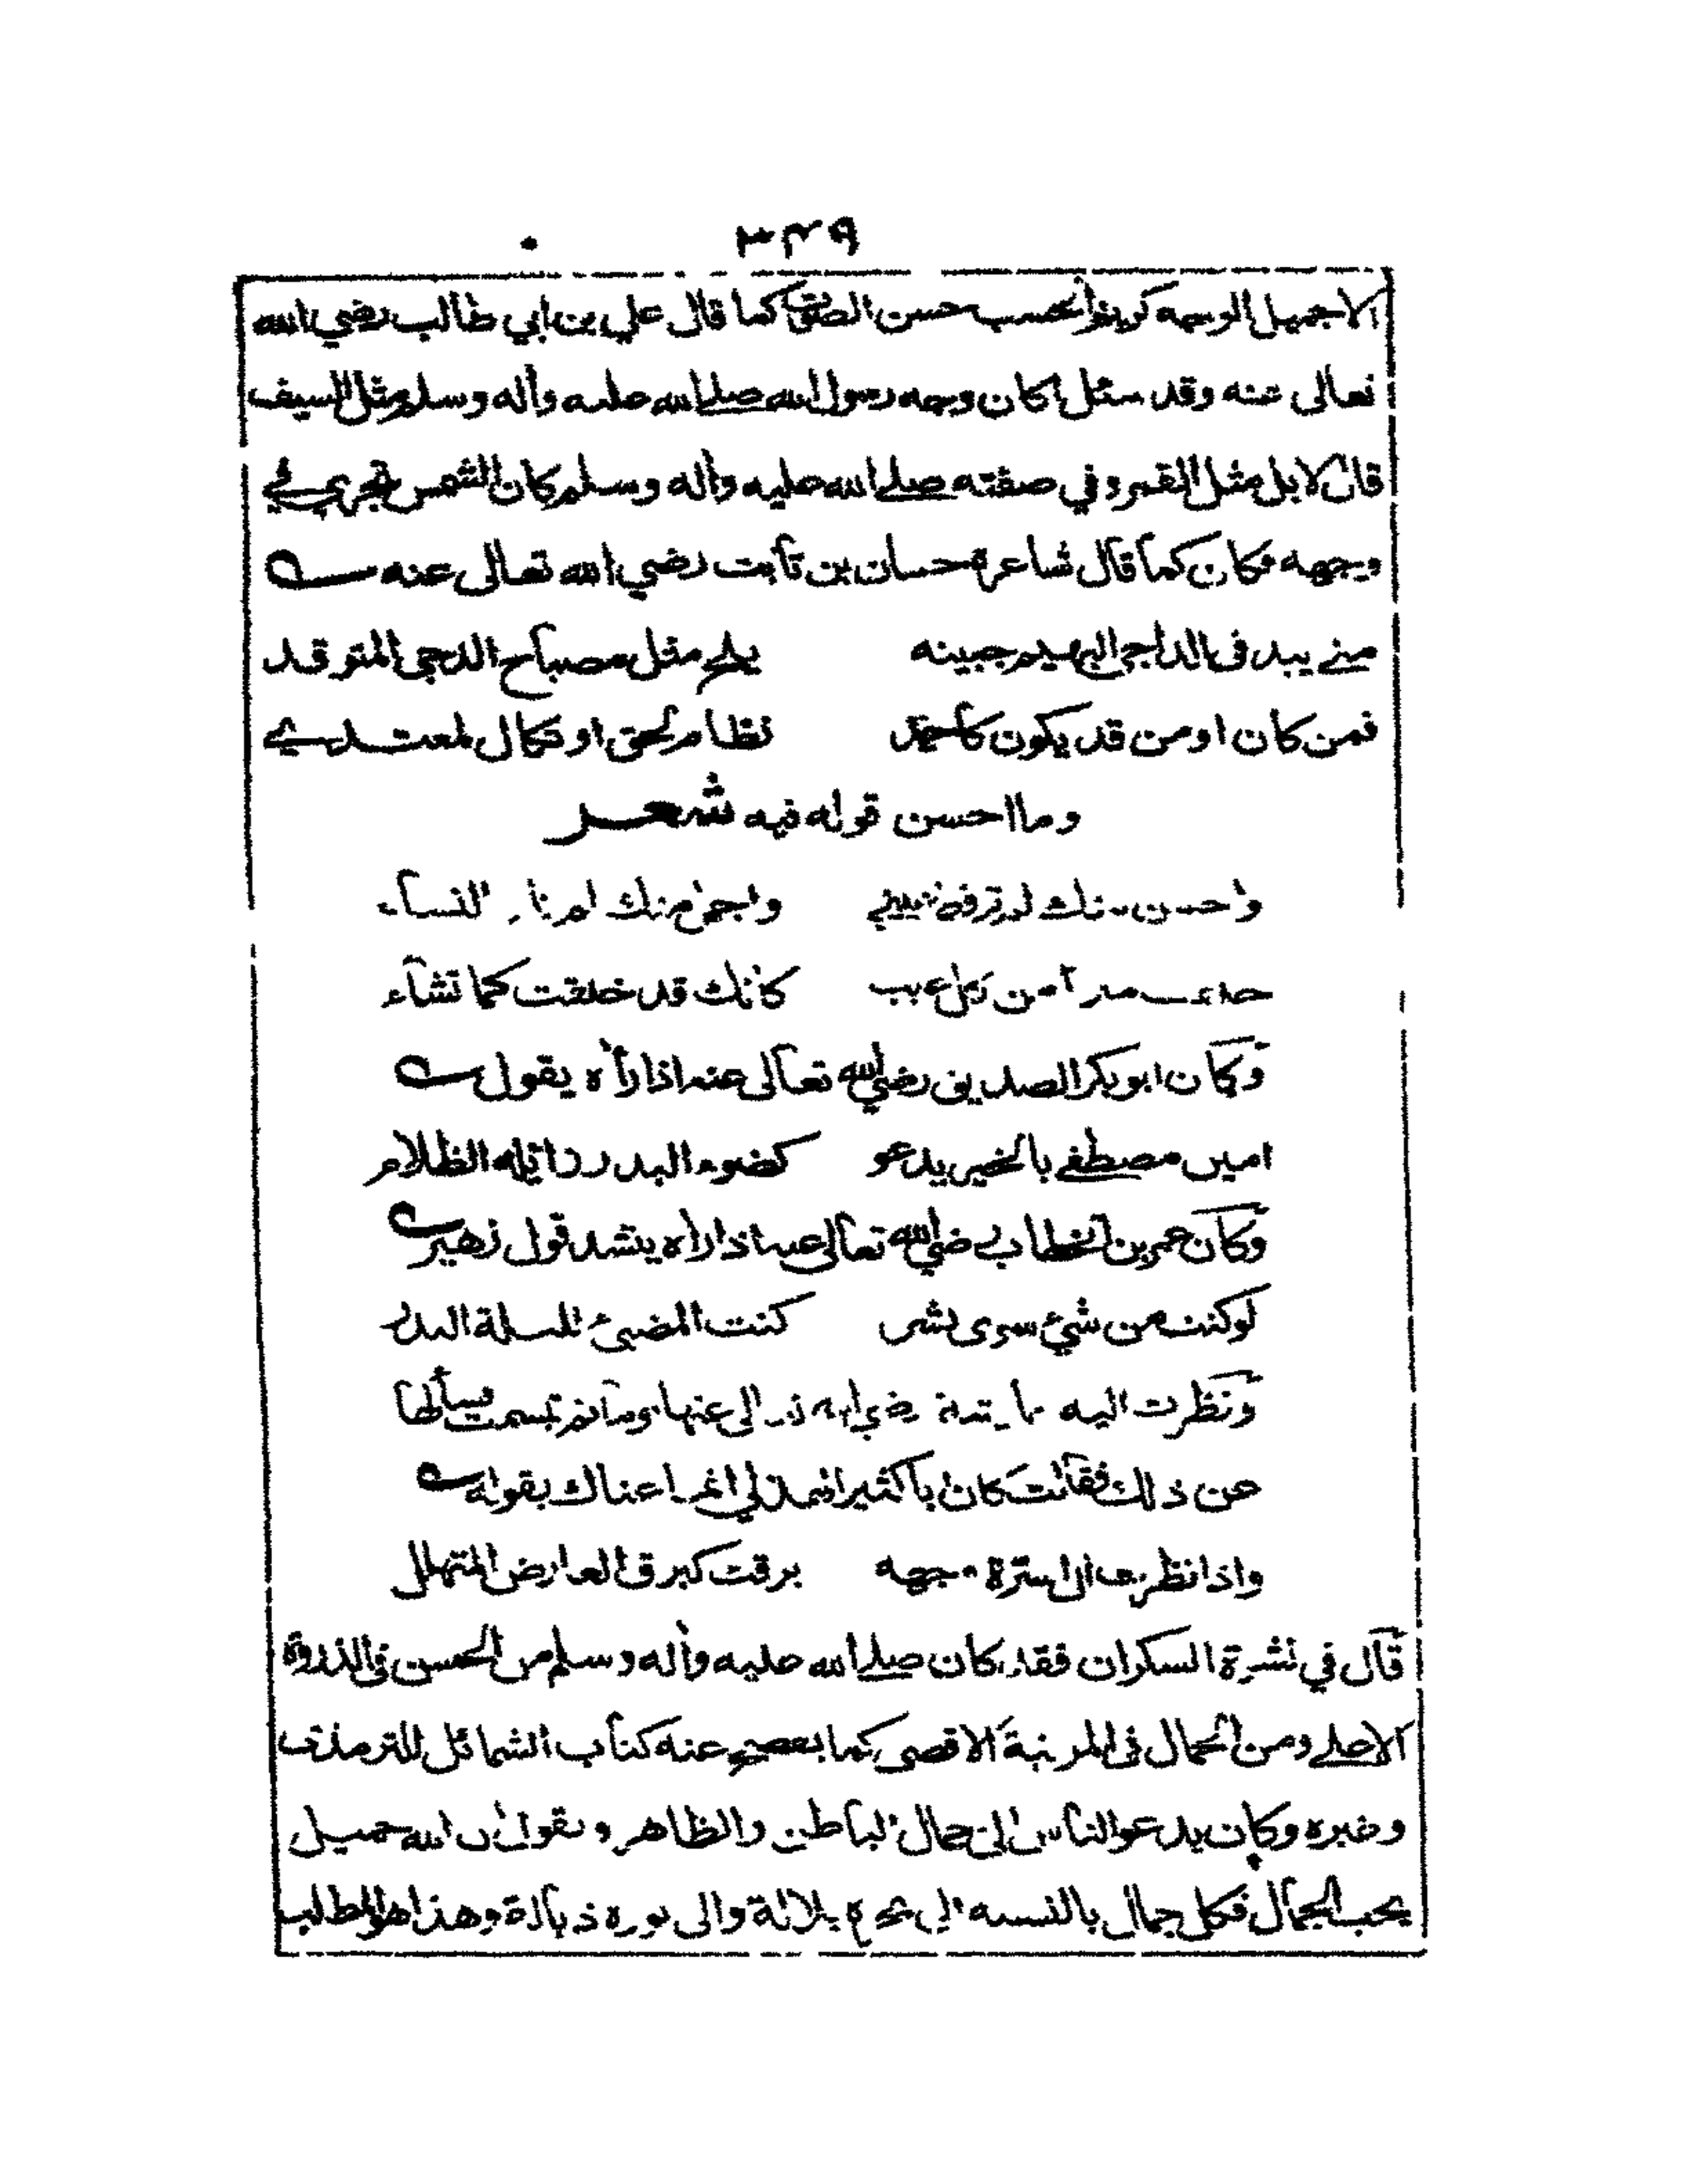 ٣٤٩
الا جميل الوجه كريم الحسب حسن الصوت كما قال علي بن ابي طالب رضي الله
تعالى عنه وقد سئل اكان وجه رسول الله صلى الله عليه وآله وسلم مثل السيف
قال لا بل مثل القمر وفي صفته صلى الله عليه وآله وسلم كان الشمس تجري في
وجهه فكان كما قال شاعره حسان بن ثابت رضي الله تعالى عنه
متى يبد في الداجي البهيم جبينه يلح مثل مصباح الدجى المتوقد
فمن كان او من قد يكون كاحمد نظام لحق او نكال لمعتدي
وما احسن قوله فيه شعر
واحسن منك لم تر قط عيني واجمل منك لم تلد النساء
خلقت مبرأ من كل عيب كانك قد خلقت كما تشاء
وكان ابو بكر الصديق رضي الله تعالى عنه اذا رأه يقول
امين مصطفى بالخير يدعو كضوء البدر زايله الظلام
وكان عمر بن الخطاب رضي الله تعالى عنه اذا رأه ينشد قول زهير
لو كنت من شيء سوى بشر كنت المضيء لليلة البدر
ونظرت اليه عايشة رضي الله تعالى عنها يوما ثم تبسمت فسألها
عن ذلك فقالت كان ابا كثير الهذلي انما عناك بقوله
واذا نظرت الى اسرة وجهه برقت كبرق العارض المتهلل
قال في نشرة السكران فقد كان صلى الله عليه وآله وسلم من الحسن في الذروة
الاعلى ومن الجمال في المرتبة الاقصى كما يفصح عنه كتاب الشمائل للترمذي
وغيره وكان يدعو الناس الى جمال الباطن والظاهر ويقول ان الله جميل
يحب الجمال فكل جمال بالنسبه الى بلالة والى نوره ذبالة وهذا هو المطلب